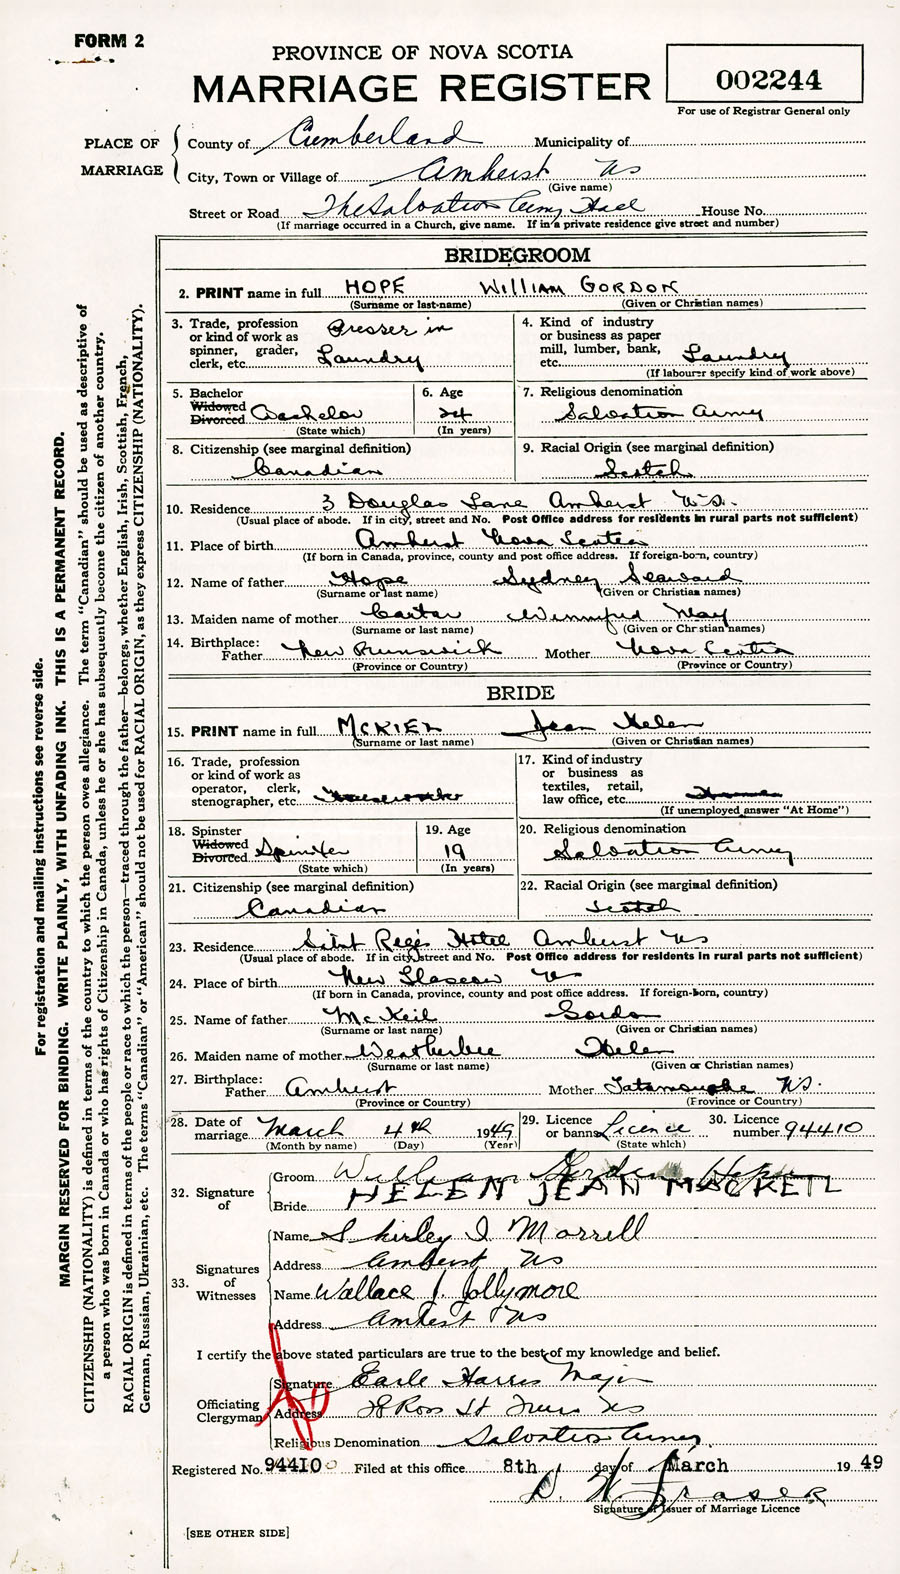 FORM 2
PROVINCE OF NOVA SCOTIA
MARRIAGE REGISTER
002244
For use of Registrar General only
PLACE OF MARRIAGE
County of Cumberland Municipality of
City, Town or Village of Amherst NS
(Give name)
Street or Road The Salvation Army Hall House No.
(If marriage occurred in a Church, give name. If in a private residence give street and number)
BRIDEGROOM
2. PRINT name in full HOPE WILLIAM GORDON
(Surname or last-name) (Given or Christian names)
3. Trade, profession or kind of work as spinner, grader, clerk, etc. Presser in Laundry
4. Kind of industry or business as paper mill, lumber, bank, etc. Laundry
(If labourer specify kind of work above)
5. Bachelor Widowed Divorced Bachelor
(State which)
6. Age 24
(In years)
7. Religious denomination
Salvation Army
8. Citizenship (see marginal definition)
Canadian
9. Racial Origin (see marginal definition)
Scotch
10. Residence 3 Douglas Lane Amherst N.S.
(Usual place of abode. If in city, street and No. Post Office address for residents in rural parts not sufficient)
11. Place of birth Amherst Nova Scotia
(If born in Canada, province, county and post office address. If foreign-born, country)
12. Name of father Hope Sydney Seaward
(Surname or last name) (Given or Christian names)
13. Maiden name of mother Carter Winnifred May
(Surname or last name) (Given or Christian names)
14. Birthplace: Father New Brunswick Mother Nova Scotia
(Province or Country) (Province or Country)
BRIDE
15. PRINT name in full McKIEL Jean Helen
(Surname or last name) (Given or Christian names)
16. Trade, profession or kind of work as operator, clerk, stenographer, etc. Houseworker
17. Kind of industry or business as textiles, retail, law office, etc.
(If unemployed answer "At Home")
18. Spinster Widowed Divorced Spinster
(State which)
19. Age 19
(In years)
20. Religious denomination
Salvation Army
21. Citizenship (see marginal definition)
Canadian
22. Racial Origin (see marginal definition)
Scotch
23. Residence Saint Regis Hotel Amherst NS
(Usual place of abode. If in city, street and No. Post Office address for residents in rural parts not sufficient)
24. Place of birth New Glasgow NS
(If born in Canada, province, county and post office address. If foreign-born, country)
25. Name of father McKeil Gordon
(Surname or last name) (Given or Christian names)
26. Maiden name of mother Weatherbee Helen
(Surname or last name) (Given or Christian names)
27. Birthplace: Father Amherst Mother Tatamouche N.S.
(Province or Country) (Province or Country)
28. Date of marriage March 4th 1949
(Month by name) (Day) (Year)
29. Licence or banns Licence
(State which)
30. Licence number 94410
32. Signature of
Groom William Gordon Hope
Bride HELEN JEAN MACKEIL
33. Signatures of Witnesses
Name Shirley I Morrell
Address Amherst NS
Name Wallace J. Jollymore
Address Amherst NS
I certify the above stated particulars are true to the best of my knowledge and belief.
Officiating Clergyman
Signature Earle Harris Major
Address 78 Ross St Truro NS
Religious Denomination Salvation Army
Registered No. 94410 Filed at this office 8th day of March 1949
D. W. Fraser
Signature of Issuer of Marriage Licence
[SEE OTHER SIDE]
For registration and mailing instructions see reverse side.
MARGIN RESERVED FOR BINDING. WRITE PLAINLY, WITH UNFADING INK. THIS IS A PERMANENT RECORD.
CITIZENSHIP (NATIONALITY) is defined in terms of the country to which the person owes allegiance. The term "Canadian" should be used as descriptive of
a person who was born in Canada or who has rights of Citizenship in Canada, unless he or she has subsequently become the citizen of another country.
RACIAL ORIGIN is defined in terms of the people or race to which the person—traced through the father—belongs, whether English, Irish, Scottish, French,
German, Russian, Ukrainian, etc. The terms "Canadian" or "American" should not be used for RACIAL ORIGIN, as they express CITIZENSHIP (NATIONALITY).